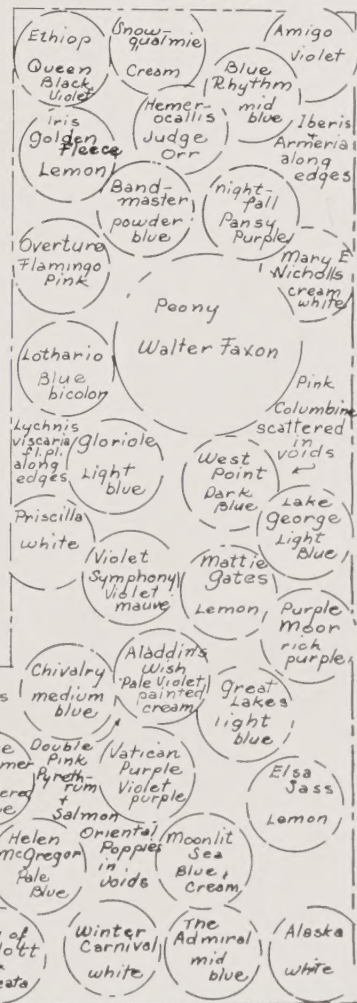 Ethiop
Queen
Black
Violet
Snow-
qualmie
Cream
Amigo
Violet
Blue
Rhythm
mid
blue
Iris
Golden
Fleece
Lemon
Hemer-
ocallis
Judge
Orr
Iberis
+
Armeria
along
edges
Band-
master
powder
blue
night-
fall
Pansy
Purple
Overture
Flamingo
Pink
Mary E
Nicholls
cream
white
Peony
Walter Faxon
Lothario
Blue
bicolor
Pink
Columbine
scattered
in
voids
Lychnis
viscaria
fl.pl.
along
edges
Gloriole
Light
blue
West
Point
Dark
Blue
Lake
George
Light
Blue
Priscilla
white
Violet
Symphony
Violet
mauve
Mattie
Gates
Lemon
Purple
Moon
rich
purple
Chivalry
medium
blue
Aladdin's
Wish
Pale Violet
painted
cream
Great
Lakes
light
blue
Double
Pink
Pyreth-
rum
+
Salmon
Oriental
Poppies
in
voids
Vatican
Purple
Violet
purple
Elsa
Sass
Lemon
Helen
McGregor
Pale
Blue
Moonlit
Sea
Blue,
Cream
of
Winter
Carnival
white
The
Admiral
mid
blue
Alaska
white